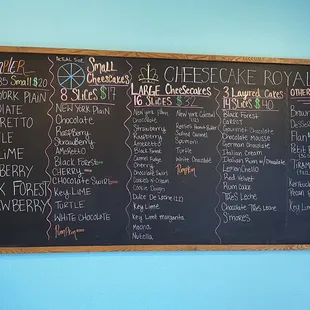 Small $20
YORK PLAIN
KEY LIME
BLACK FOREST
STRAWBERRY
ACTUAL SIZE
Small
Cheesecakes
8 SLICES $17
NEW YORK PLAIN
Chocolate
Raspberry
Strawberry
Amaretto
Black Forest
CHERRY
CHOCOLATE SWIRL
KEY LIME
TURTLE
WHITE CHOCOLATE
Pumpkin
CHEESECAKE ROYAL
LARGE Cheesecakes
16 SLICES $32
New York Plain
Chocolate
Strawberry
Raspberry
Amaretto
Black Forest
Caramel Fudge
Cherry
Chocolate Swirl
Cookies N Cream
Cookie Dough
Dulce De Leche
Key Lime
Key Lime Margarita
Mocha
Nutella
New York Caramel
Turtle
White Chocolate
Pumpkin
3 Layered Cakes
14 Slices $40
Black Forest
Carrot
Gourmet Chocolate
Chocolate Mousse
German Chocolate
Italian Cream
Lemoncello
Red Velvet
Rum Cake
Tres Leche
Chocolate Tres Leche
S'mores
OTHER
Flan
Petit
TIRAM
Key Lime